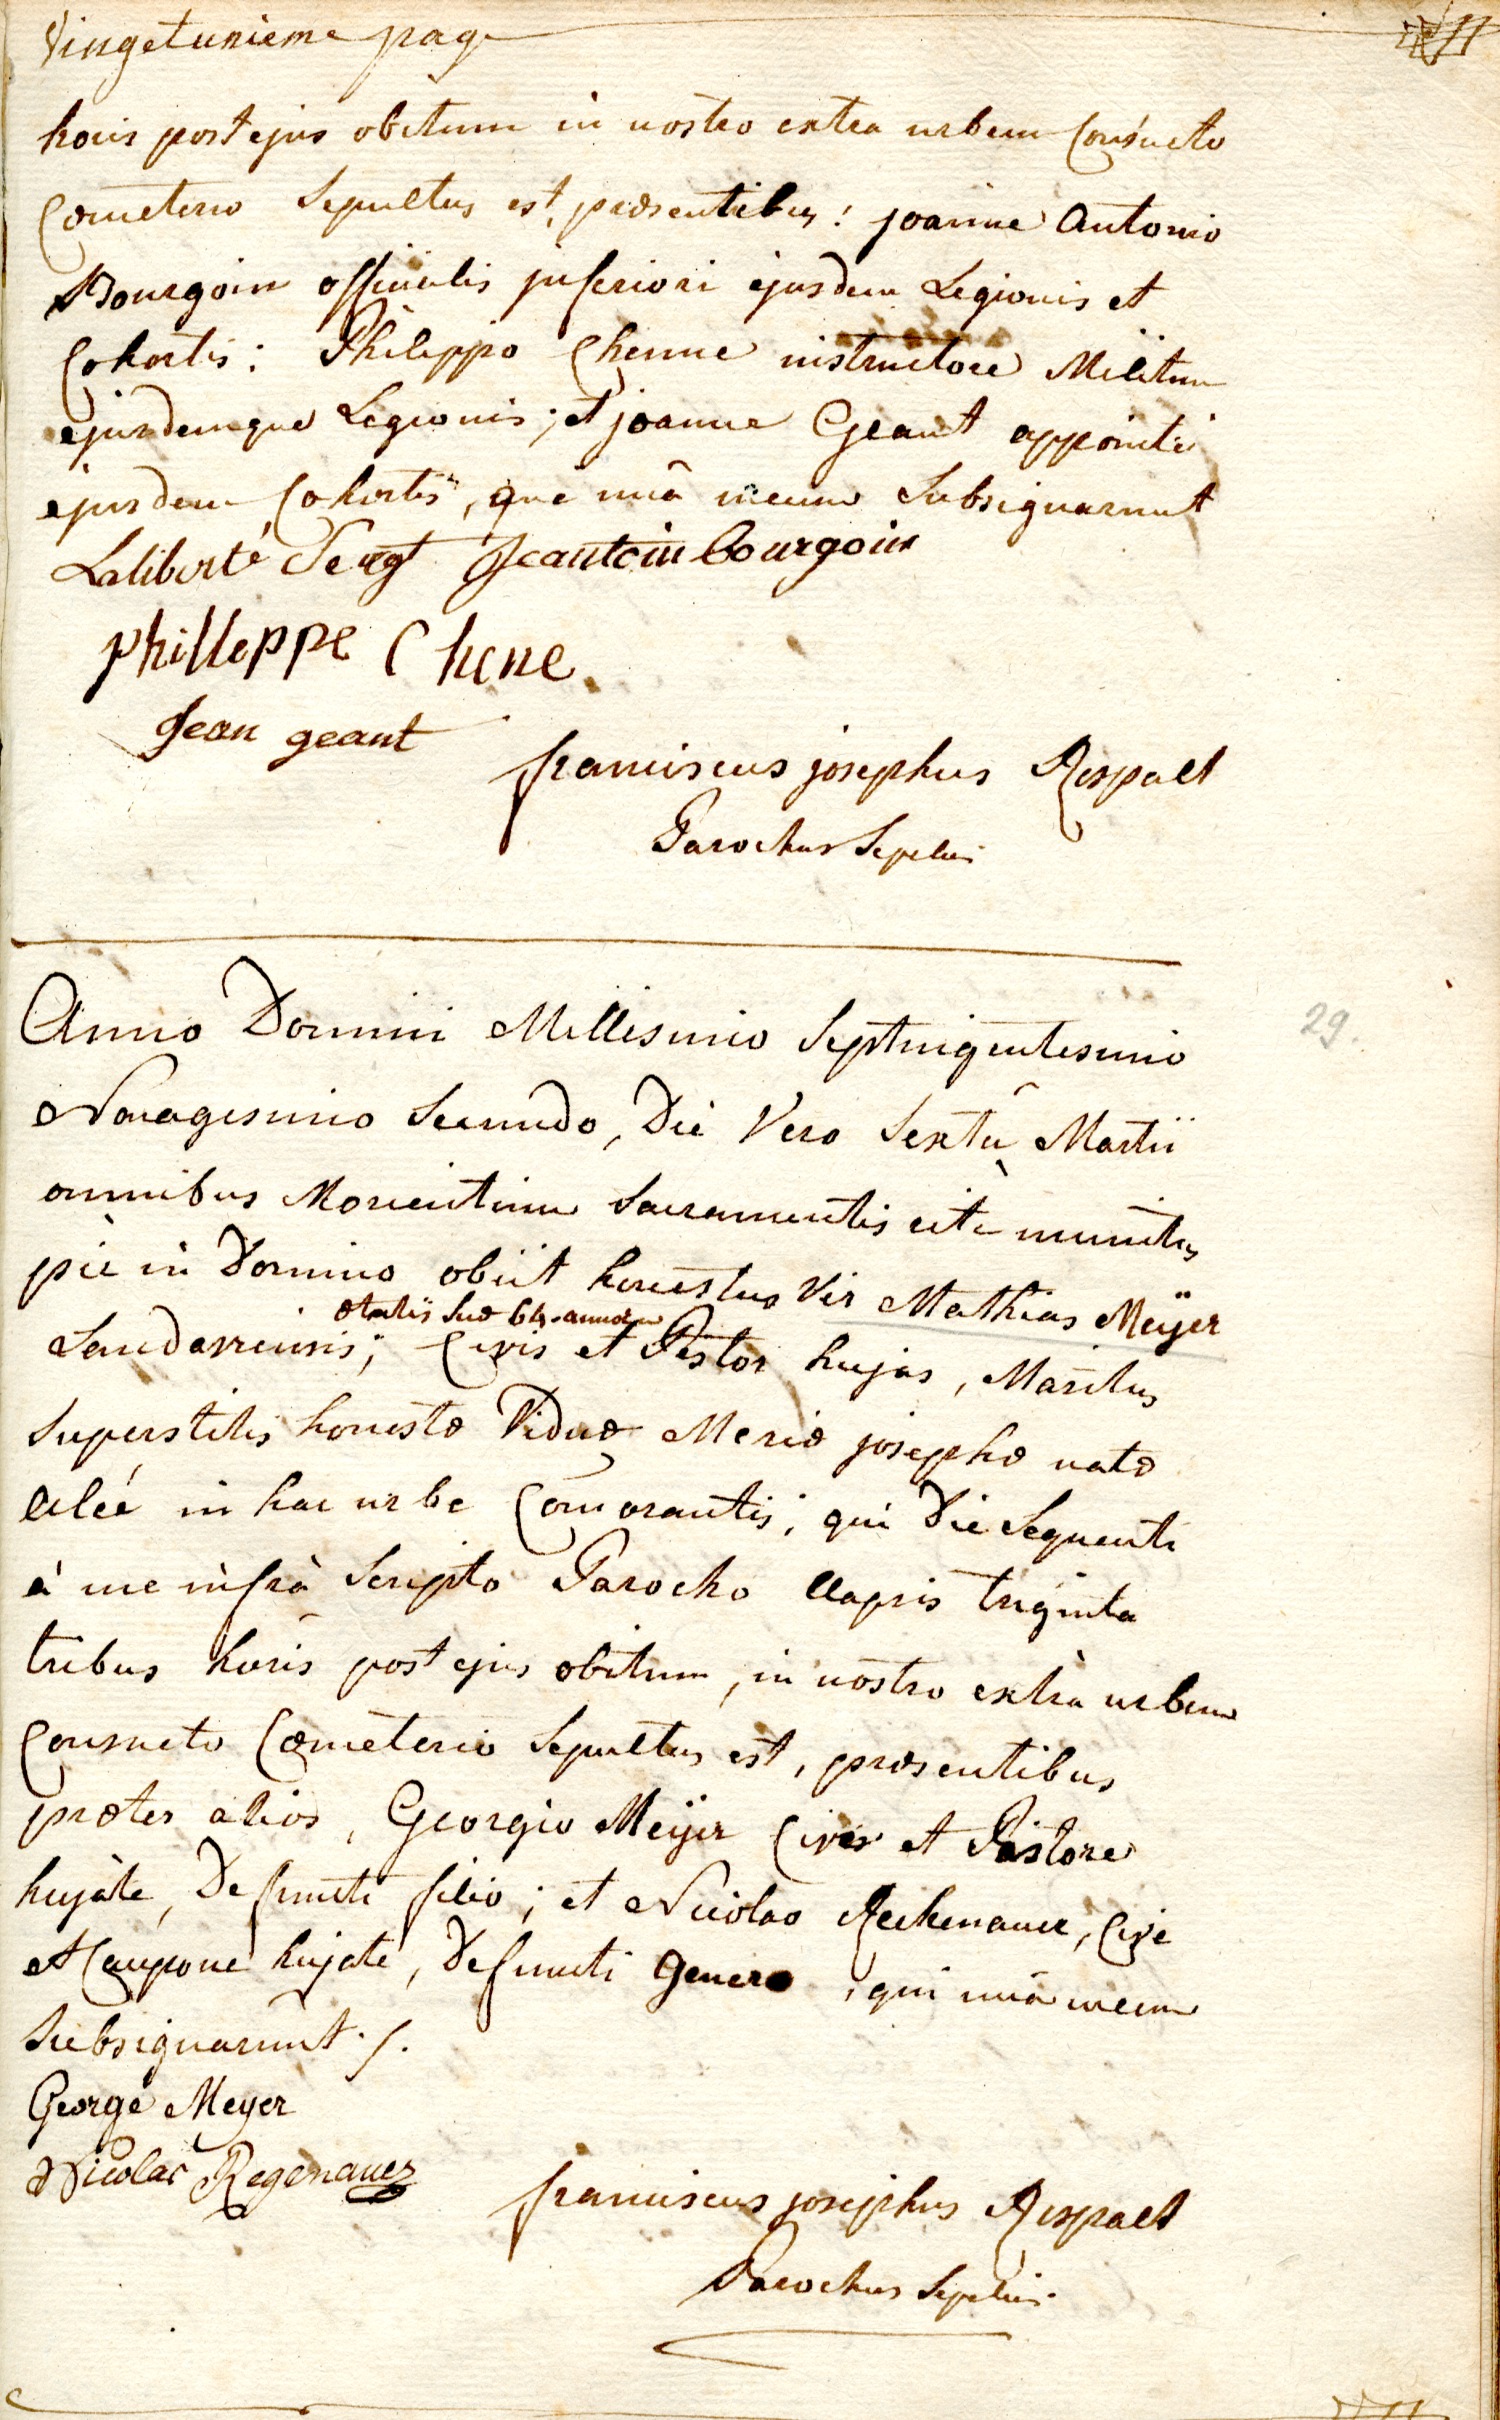 Vingetunieme page
horis post ejus obitum in nostro extra urbem Consueto
Cœmeterio Sepultus est, præsentibus: joanne Antonio
Bourgoin officialis inferiori ejusdem Legionis et
Cohortis: Philippo Chenne instructore Militum
ejusdemque Legionis; et joanne Geant appointé
ejusdem Cohortis, qui unâ mecum Subsignarunt
Laliberté Sergt Jeantoin bourgoin
philleppe Chene
Jean geant
franciscus josephus Respalt
Parochus Sepelivi
Anno Domini Millesimo Septingentesimo
29.
Nonagesimo Secundo, Die Vero Sextâ Martii
omnibus Morientium Sacramentis rite munitus
piè in Domino obiit honestus Vir Mathias Meÿer
ætatis suæ 64. annorum
Landaviensis; Civis et Pistor hujas, Maritus
Superstitis honestæ Viduæ Mariæ josephæ natæ
Alcé in hac urbe Comorantis; qui Die Sequenti
à me infrà Scripto Parocho elapsis triginta
tribus horis post ejus obitum, in nostro extrà urbem
Consueto Cœmeterio Sepultus est, præsentibus
præter alios, Georgio Meÿer Cive et Pistore
hujáte, Defuncti filio; et Nicolao Reckenauer, Cive
et Caupone hujate, Defuncti Genero, qui unâ mecum
Subsignarunt ./.
George Meyer
Nicolas Regenauer
franciscus josephus Respalt
Parochus Sepelivi.